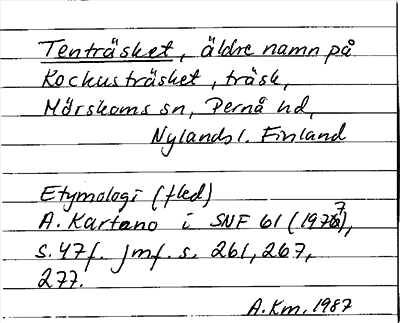 Tenträsket, äldre namn på
Kockusträsket, träsk,
Mörskoms sn, Pernå hd,
Nylands l. Finland
Etymologi (fled)
A. Kartano i SNF 61 (1977),
s. 47f. Jmf. s. 261, 267,
277.
A.Km. 1987